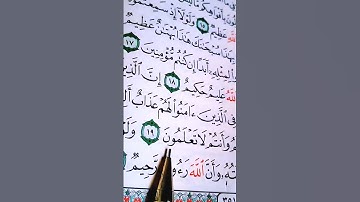 عَظِيمٌ ١٥ وَلَوْلَآ إِذْ سَمِعْتُمُوهُ
سُبْحَٰنَكَ هَٰذَا بُهْتَٰنٌ عَظِيمٌ
لِمِثْلِهِۦٓ أَبَدًا إِن كُنتُم مُّؤْمِنِينَ ١٧
ٱللَّهُ عَلِيمٌ حَكِيمٌ ١٨ إِنَّ ٱلَّذِينَ
فِي ٱلَّذِينَ ءَامَنُواْ لَهُمْ عَذَابٌ
وَأَنتُمْ لَا تَعْلَمُونَ ١٩ وَلَوْ
وَأَنَّ ٱللَّهَ رَءُوفٌ رَّحِيمٌ
٣٥١